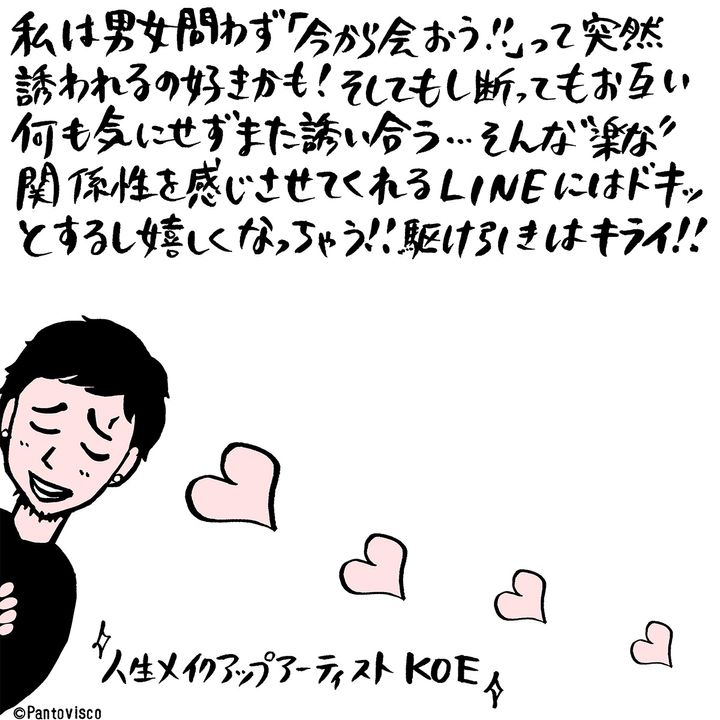 私は男女問わず「今から会おう!!」って突然
誘われるの好きかも!そしてもし断ってもお互い
何も気にせずまた誘い合う…そんな"楽な"
関係性を感じさせてくれるLINEにはドキッ
とするし嬉しくなっちゃう!!駆け引きはキライ!!
人生メイクアップアーティスト KOE
©Pantovisco